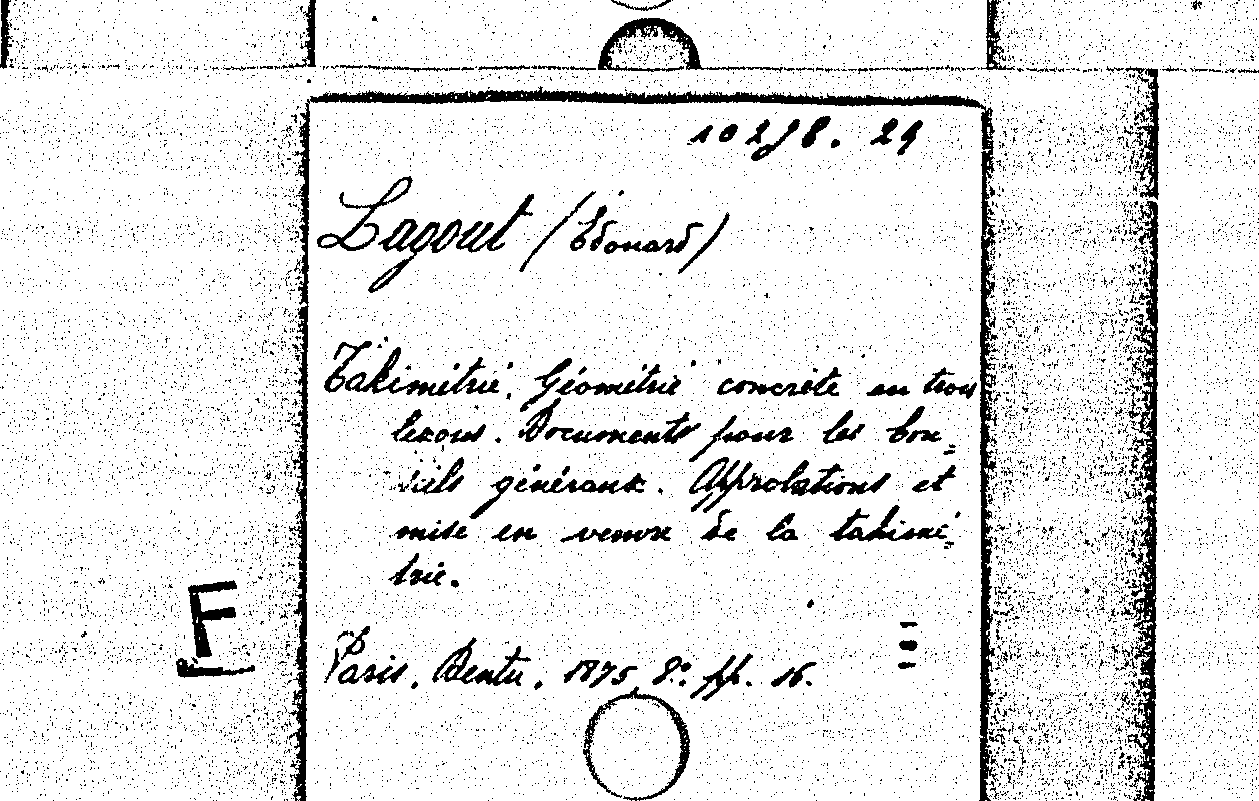 10298. 24
Lagout (Édouard)
Takimétrie. Géométrie concrète en trois
leçons. Documents pour les Con=
seils généraux. Approbations et
mise en œuvre de la takimé=
trie.
F
Paris, Dentu, 1875, 8°. pp. 16.